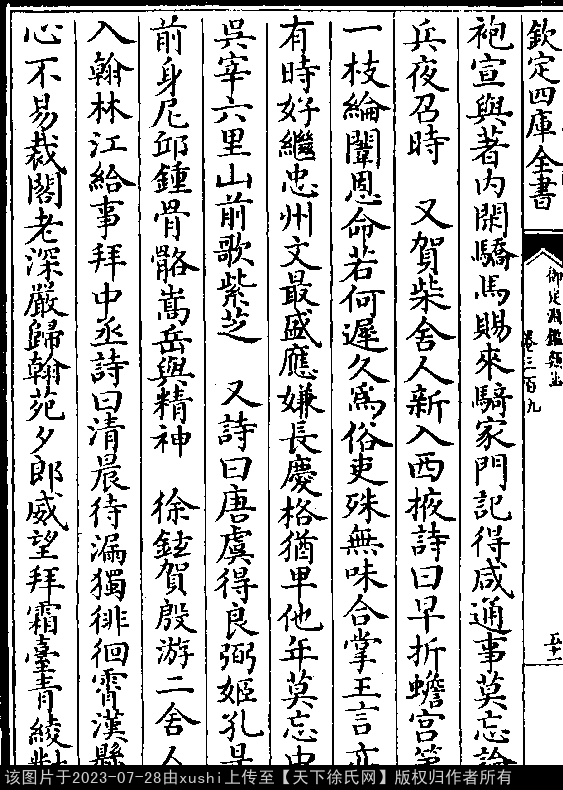 欽定四庫全書
御定淵鑑類函
卷三百九
五十二
袍宣與著内閑驕馬賜來騎家門記得咸通事莫忘論
兵夜召時　又賀柴舍人新入西掖詩曰早折蟾宮第
一枝綸闈恩命若何遲久為俗吏殊無味合掌王言亦
有時好繼忠州文最盛應嫌長慶格猶卑他年莫忘中
吳宰六里山前歌紫芝　又詩曰唐虞得良弼姬孔是
前身尼邱鍾骨骼嵩岳與精神　徐鉉賀殷游二舍人
入翰林江給事拜中丞詩曰清晨待漏獨徘徊霄漢懸
心不易裁閣老深嚴歸翰苑夕郎威望拜霜臺青綾對
该图片于2023-07-28由xushi上传至【天下徐氏网】版权归作者所有